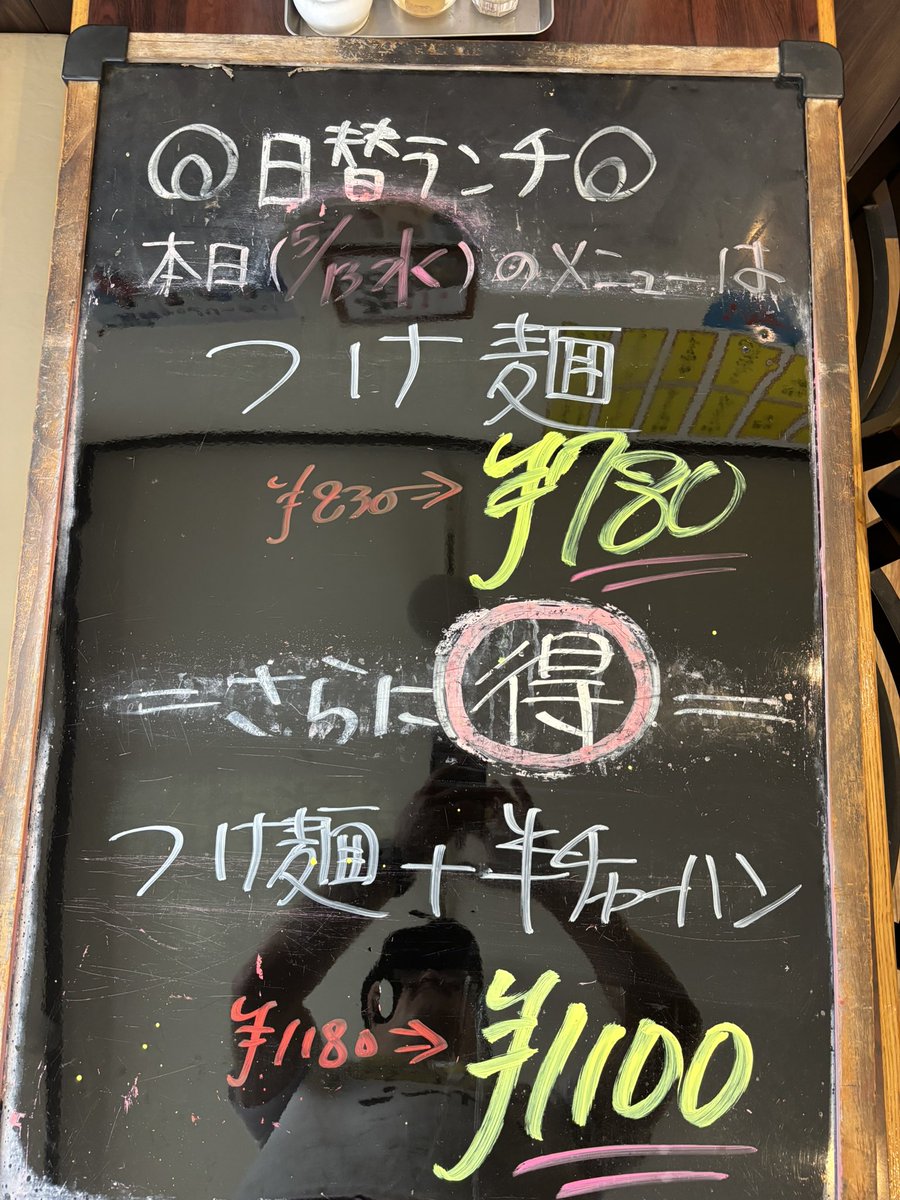 日替ランチ
本日(5/13水)のメニューは
つけ麺
¥830→ ¥780
=さらに得=
つけ麺+半チャーハン
¥1180→ ¥1100